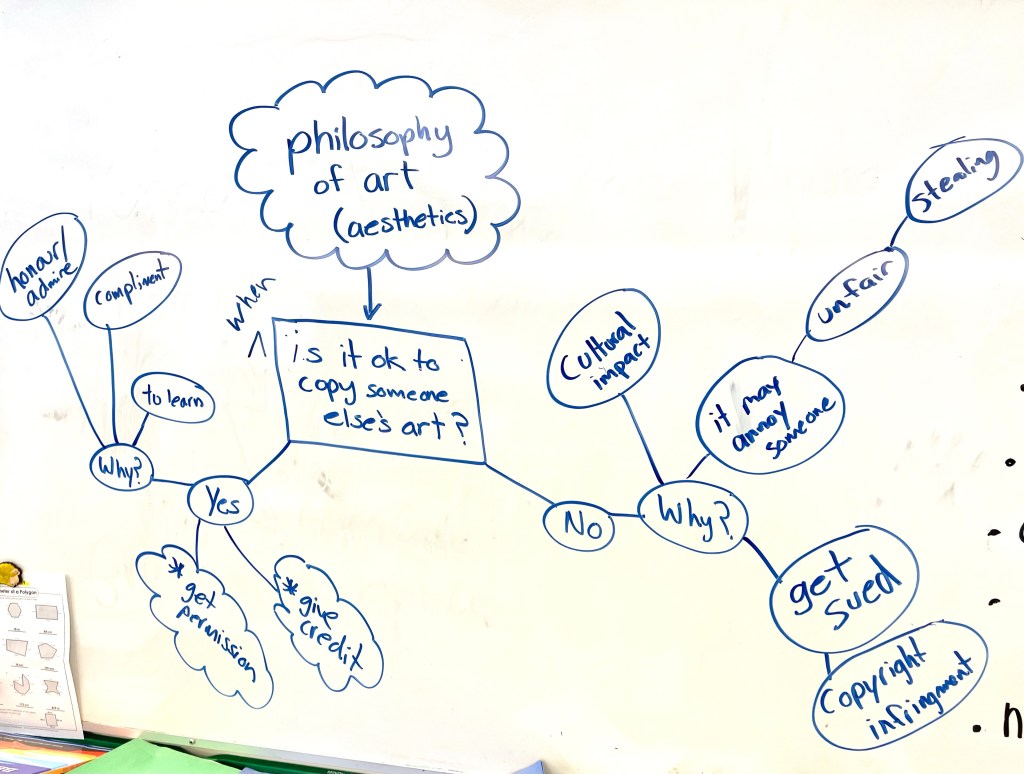 philosophy
of art
(aesthetics)
when
^
is it ok to
copy someone
else's art?
Yes
Why?
honour/
admire
compliment
to learn
* get
permission
* give
credit
No
Why?
Cultural
impact
it may
annoy
someone
unfair
stealing
get
sued
Copyright
infringment
. n
of a Polygon